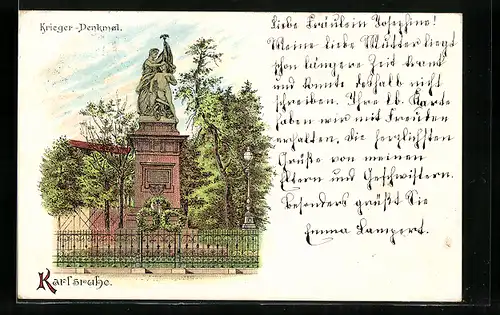 Krieger-Denkmal.
Liebe Fräulein Josephine!
Meine liebe Mutter liegt
schon längere Zeit krank
und konnte deshalb nicht
schreiben. Ihre lb. Karte
haben wir mit Freuden
erhalten. Die herzlichsten
Grüße von meinen
Eltern und Geschwistern.
Besonders grüßt Sie
Emma Lampert.
Karlsruhe.